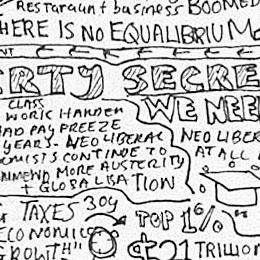 Restaraunt & business BOOMED
HERE IS NO EQUALIBRIUM
NT
ERTY SECRE
CLASS
WORK HARDER
BAD PAY FREEZE
YEARS - NEO LIBERAL
OMISTS CONTINUE TO
MMEND MORE AUSTERITY
+ GLOBALISATION
WE NEE
NEO LIBER
AT ALL
& TAXES 30y
ECONOMICS
GROWTH"
TOP 1%
$21 TRILLION